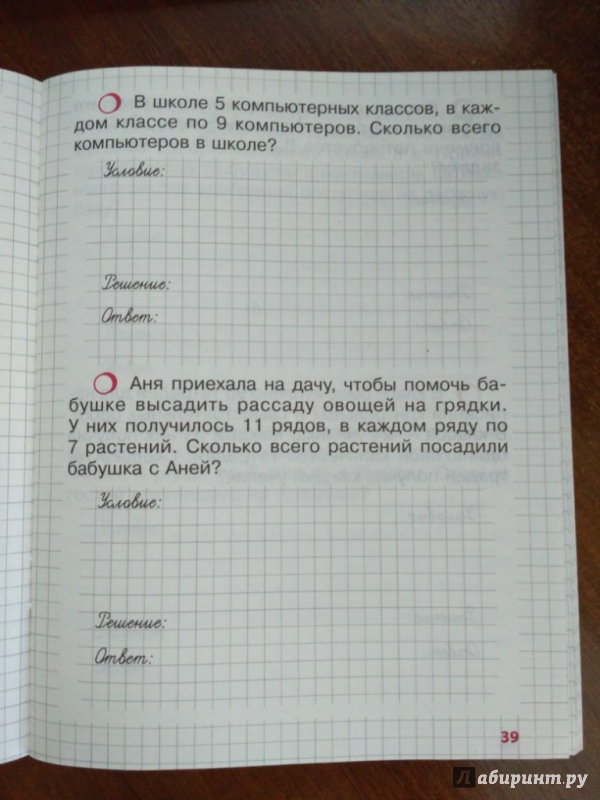 В школе 5 компьютерных классов, в каж-
дом классе по 9 компьютеров. Сколько всего
компьютеров в школе?
Условие:
Решение:
Ответ:
Аня приехала на дачу, чтобы помочь ба-
бушке высадить рассаду овощей на грядки.
У них получилось 11 рядов, в каждом ряду по
7 растений. Сколько всего растений посадили
бабушка с Аней?
Условие:
Решение:
Ответ:
39
Лабиринт.ру